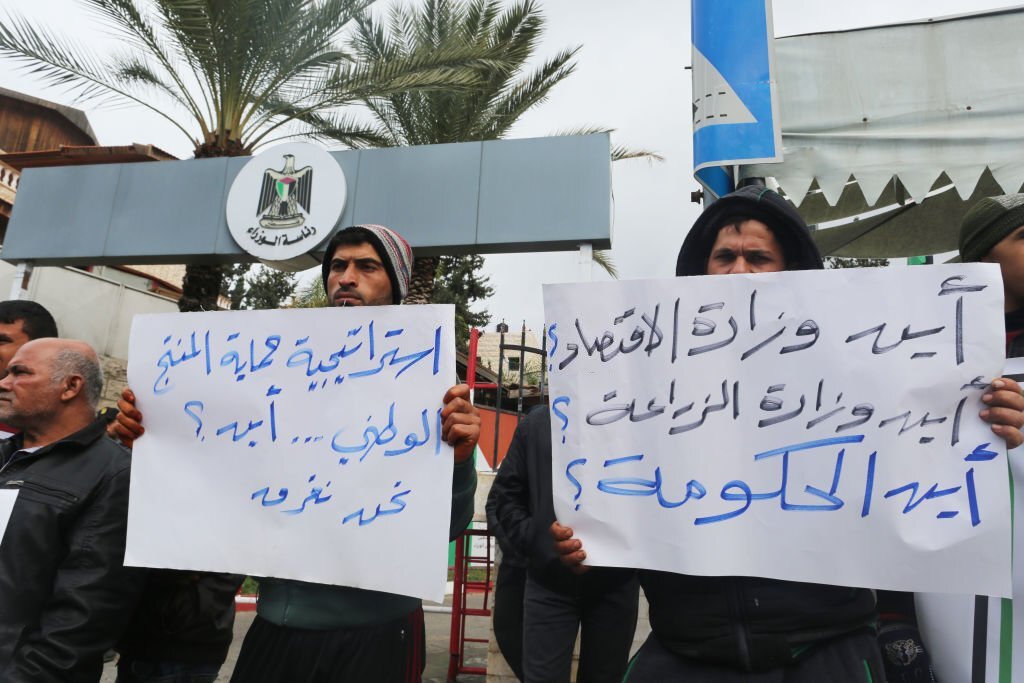 رئاسة الوزراء
استراتيجية حماية المنتج
الوطني ... أين ؟
نحن نغرق
أين وزارة الاقتصاد ؟
أين وزارة الزراعة ؟
أين الحكومة ؟